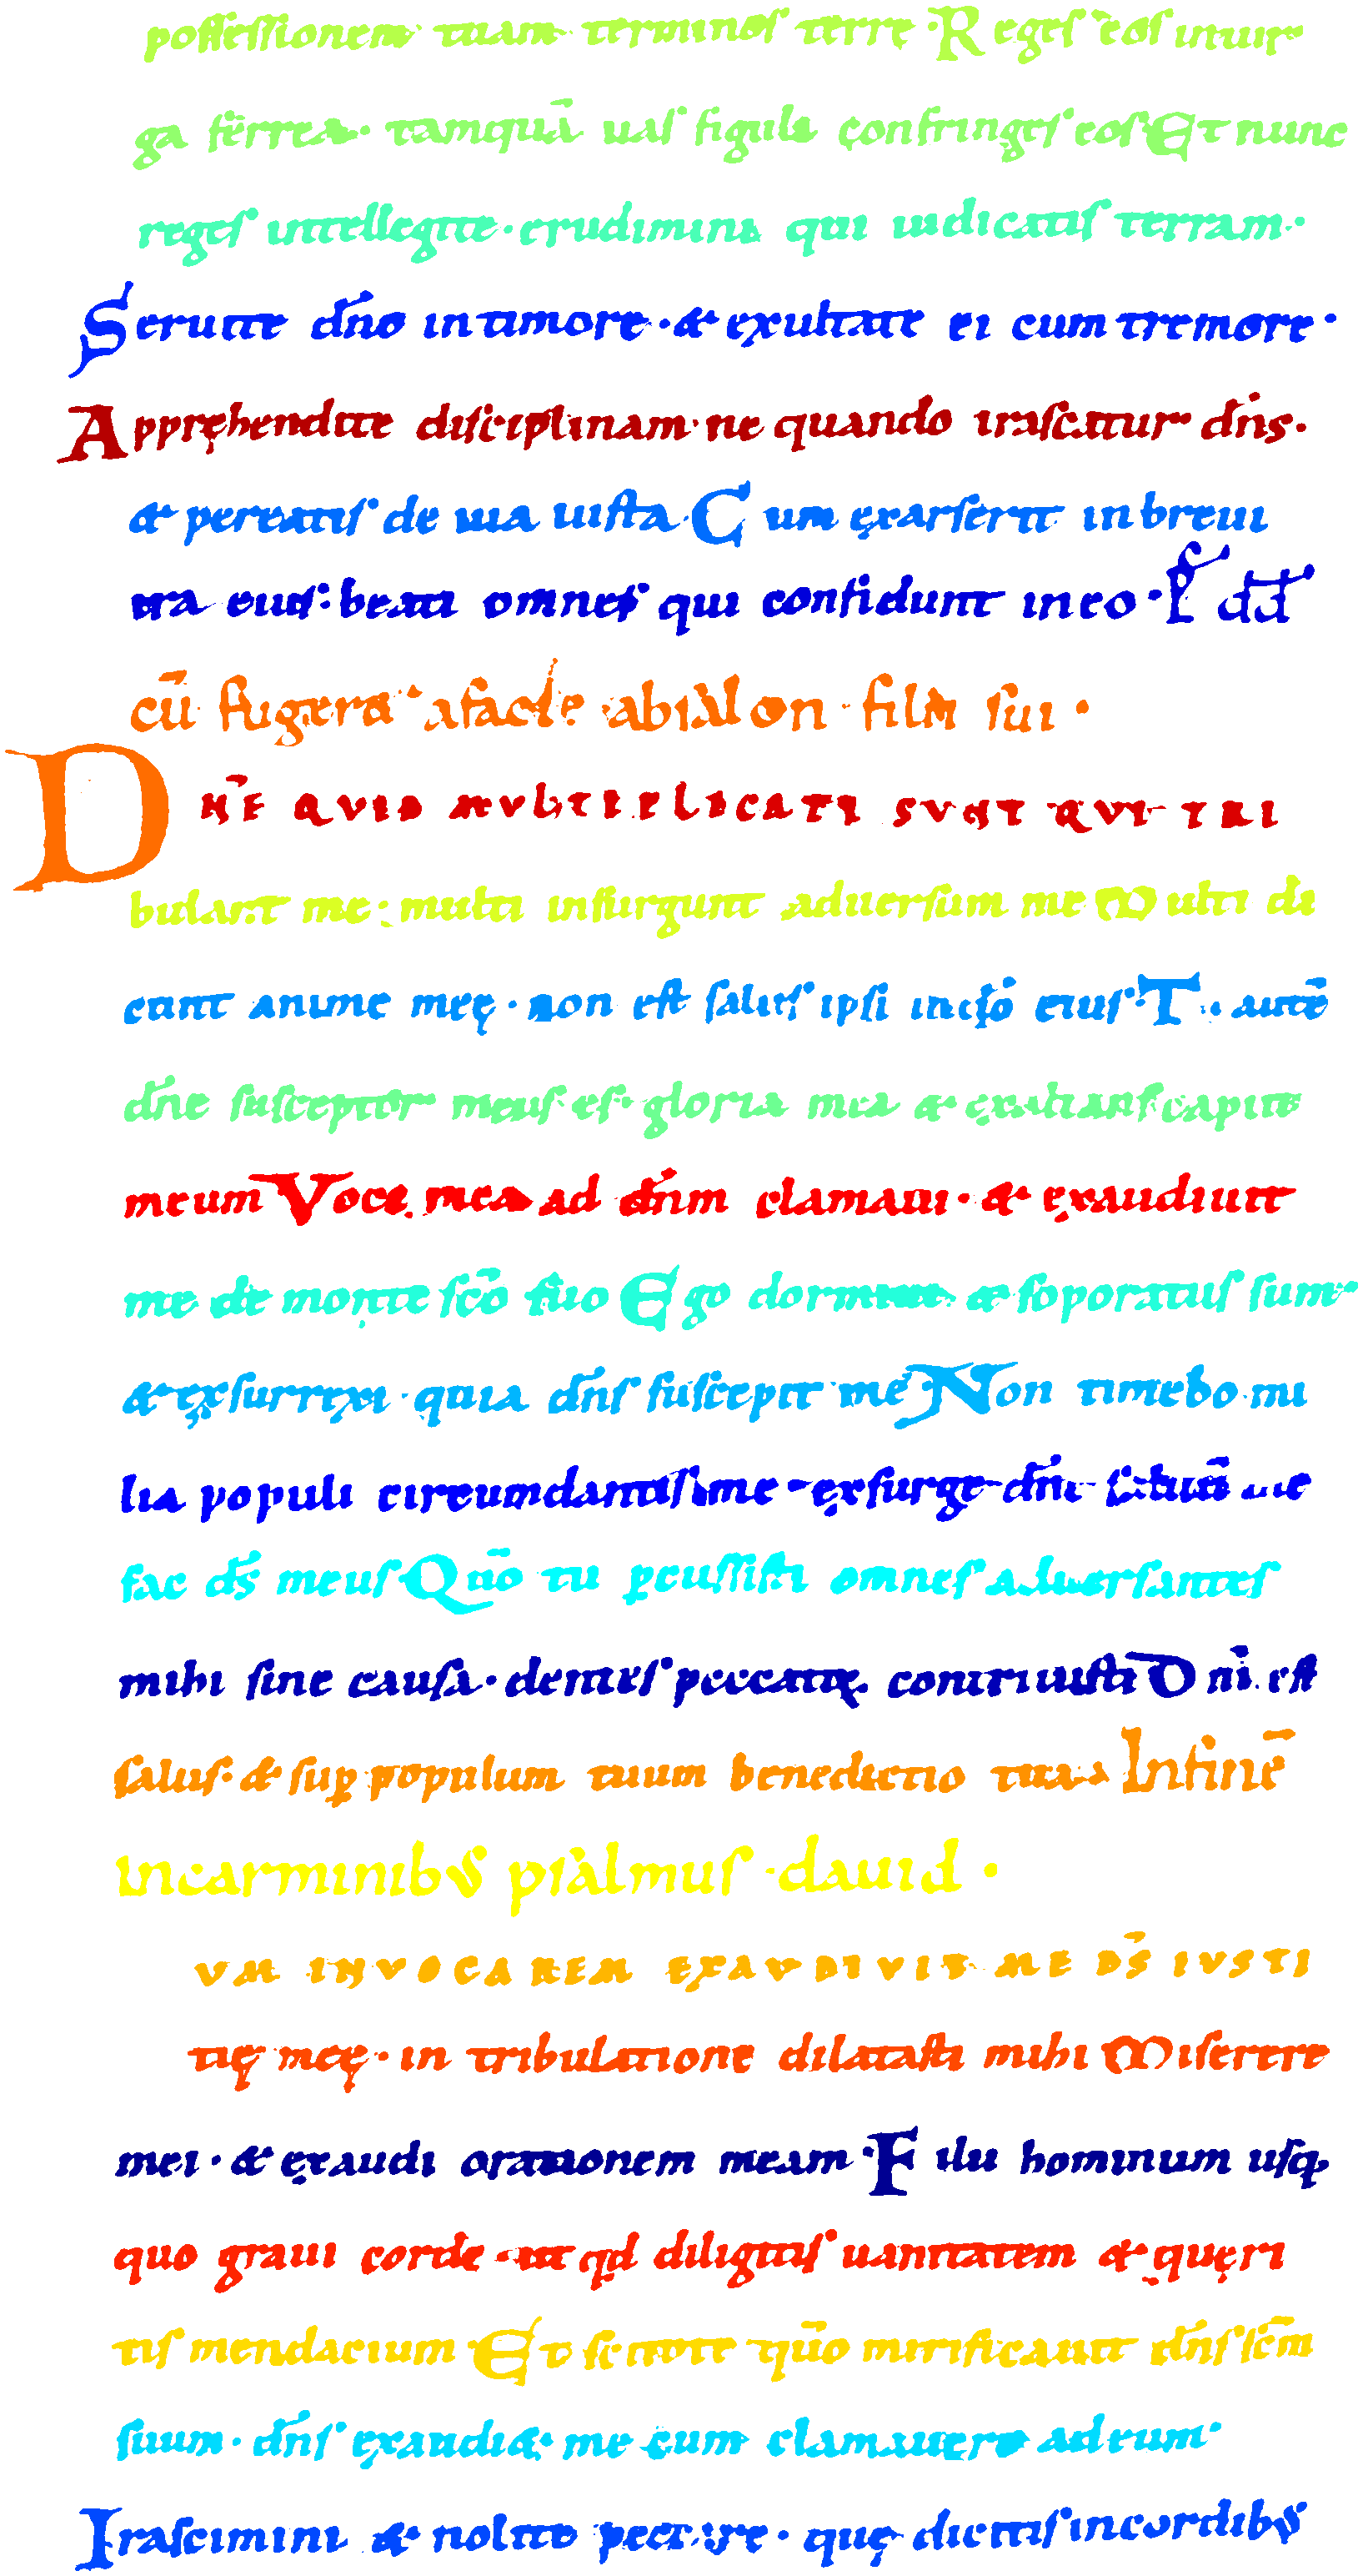 possessionem tuam terminos terre · Reges eos in uir
ga ferrea · tamquā uas figuli confringes eos Et nunc
reges intellegite · erudimini qui iudicatis terram ·
Seruite dn̄o in timore · & exultate ei cum tremore ·
Appręhendite disciplinam · ne quando irascatur dn̄s ·
& pereatis de uia iusta · Cum exarserit in breui
ira eius : beati omnes qui confidunt in eo · Ps̄ dd̄
cū fugera a facie abisalon filii sui ·
DNE QUID MULTIPLICATI SUNT QUI TRI
bulant me : multi insurgunt aduersum me Multi di
cunt anime meę · non est salus ipsi in dō eius · Tu autē
dn̄e susceptor meus es · gloria mea & exaltans capite
meum Voce mea ad dn̄m clamaui · & exaudiuit
me de monte scō suo Ego dormiui & soporatus sum
& exsurrexi · quia dn̄s suscepit me Non timebo mi
lia populi circumdantis me · exsurge dn̄e saluū me
fac ds̄ meus Quō tu ꝑcussisti omnes aduersantes
mihi sine causa · dentes peccatoꝝ contriuisti Dn̄i est
salus · & suꝑ populum tuum benedictio tua In finē
in carminibus psalmus · dauid ·
UM INVOCAREM EXAUDIVIT ME DS̄ IUSTI
tię meę · in tribulatione dilatasti mihi Miserere
mei · & exaudi orationem meam · Filii hominum usq,
quo graui corde · ut qd diligitis uanitatem & quęri
tis mendacium Et scitote quō mirificauit dn̄s scm̄
suum · dn̄s exaudi& me cum clamauero ad eum
Irascimini & nolite peccare · quę dicitis in cordibus